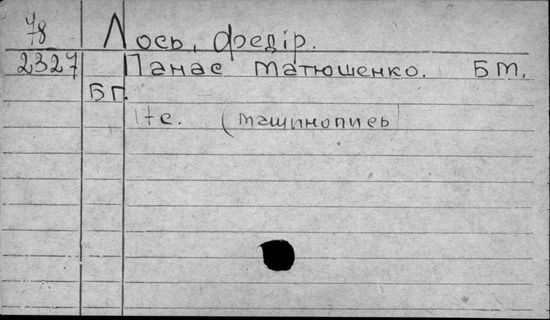 78 Лось, Федір.
2327 Панас Матюшенко. Б м.
Б г.
17 с. (машинопись)